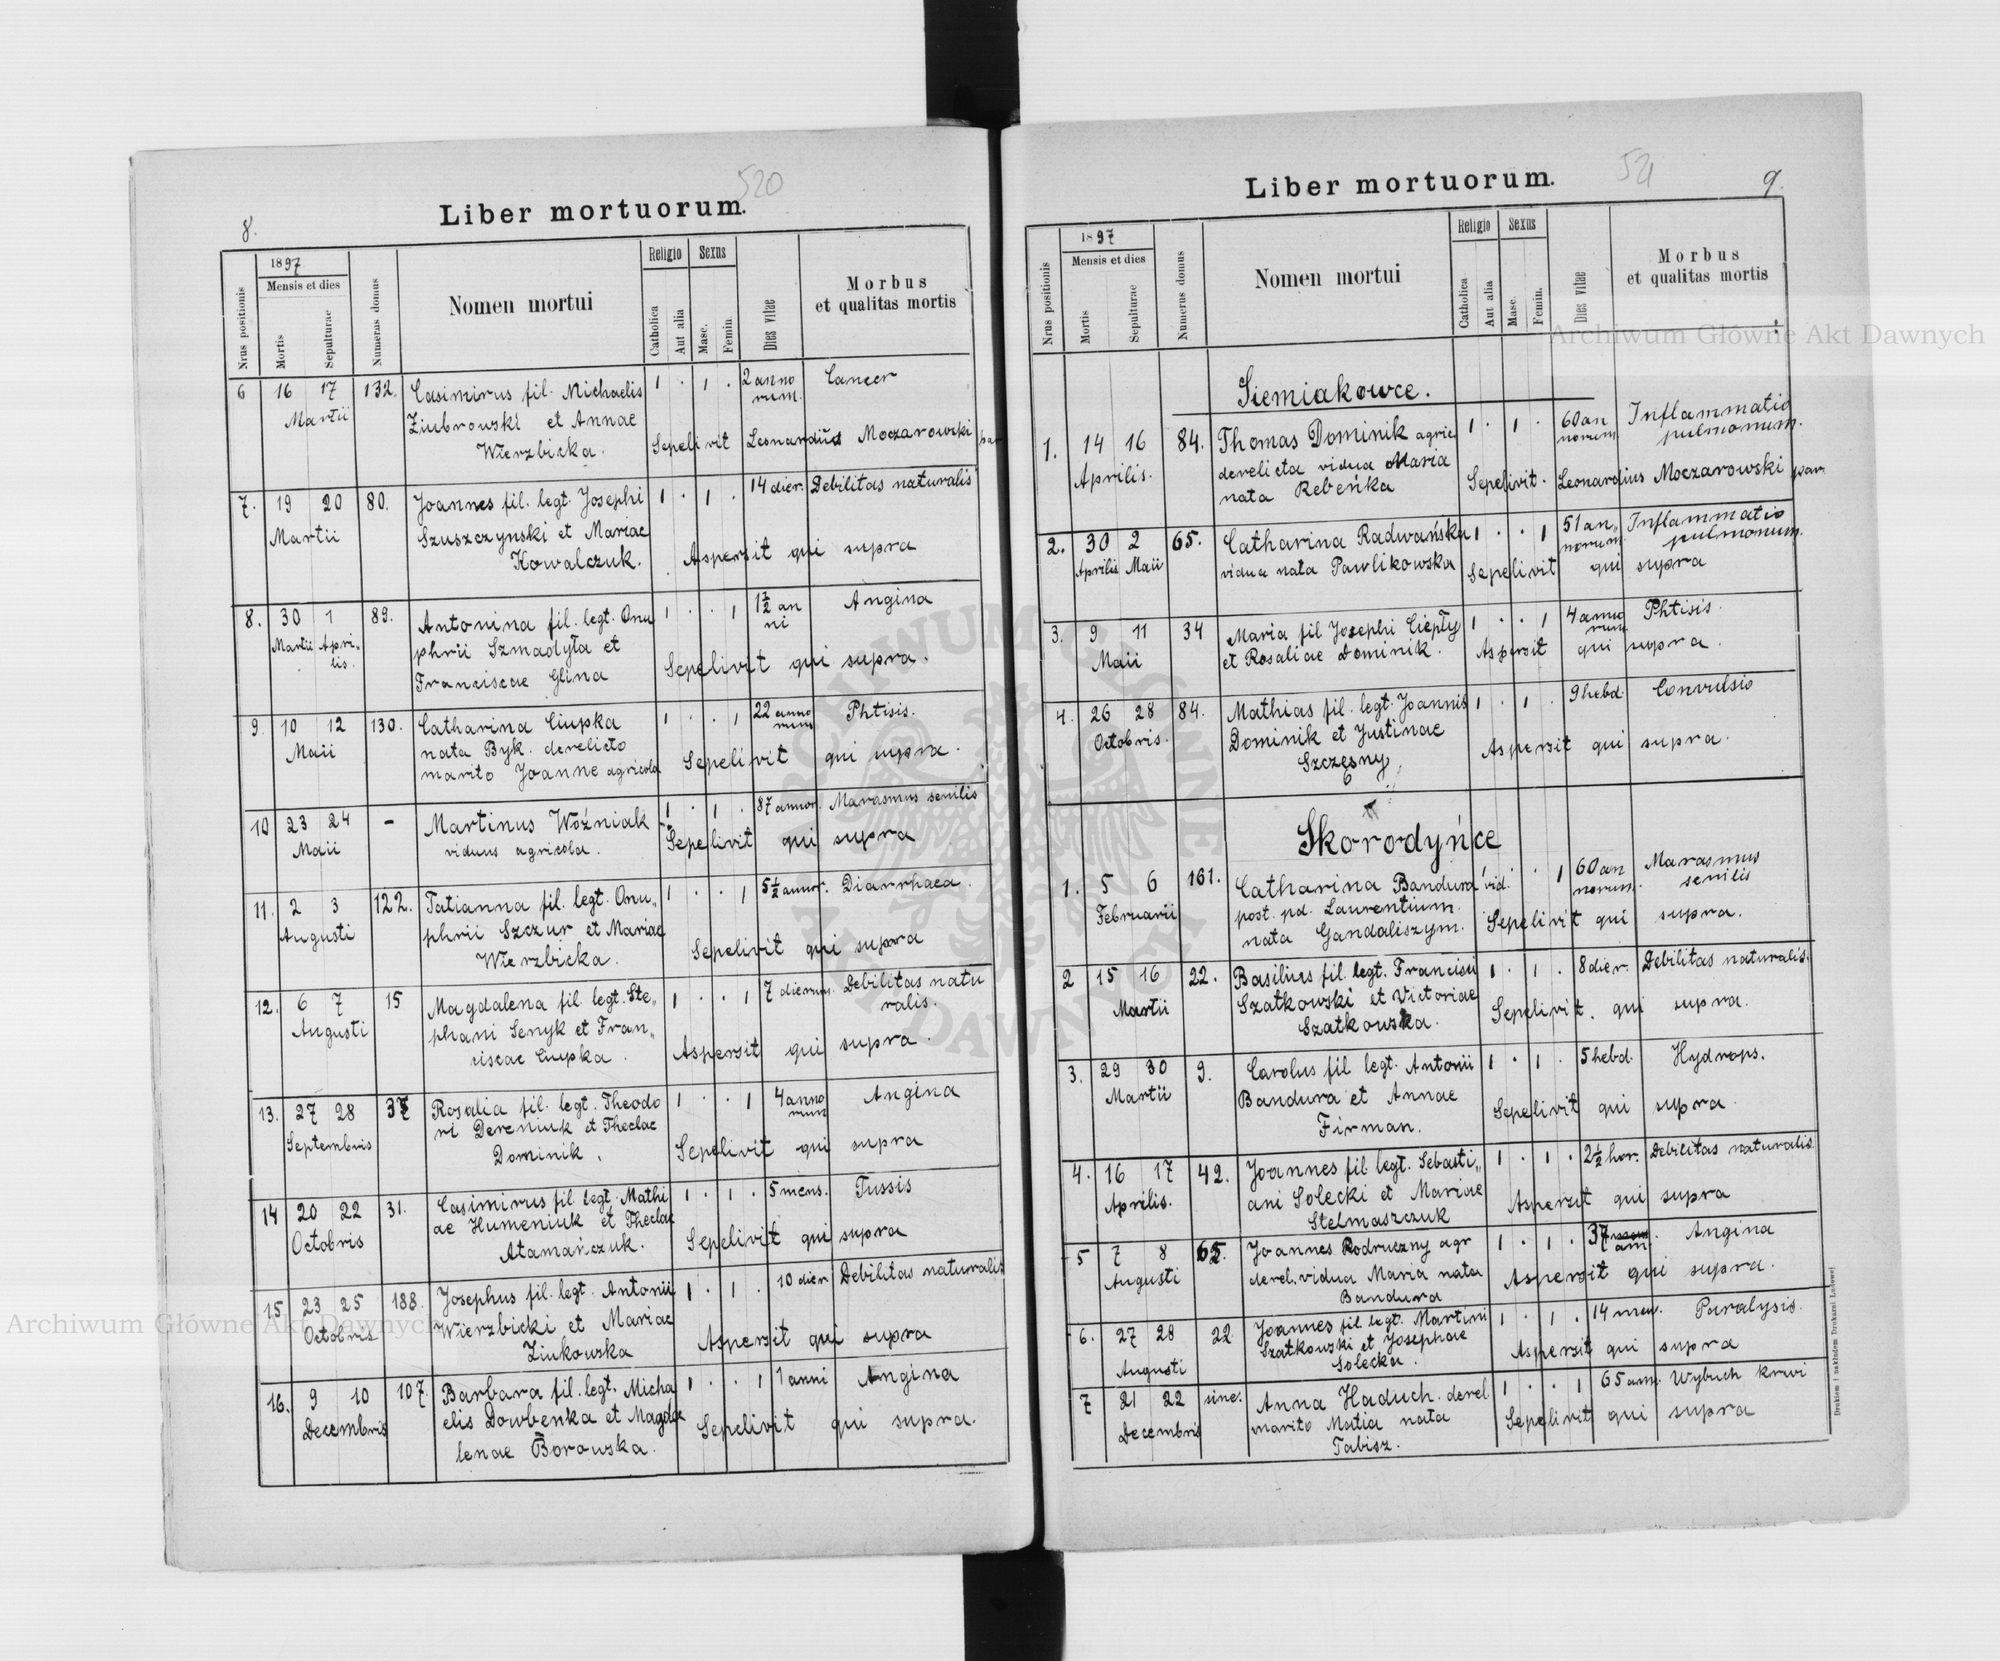 520
Liber mortuorum.
8.
Nrus positionis
1897
Mensis et dies
Mortis
Sepulturae
Numerus domus
Nomen mortui
Religio
Catholica
Aut alia
Sexus
Masc.
Femin.
Dies vitae
Morbus
et qualitas mortis
6 16 17 132. Casimirus fil. Michaelis 1 . 1 . 2 anno Cancer
Martii Ziubrowski et Annae rum.
Wierzbicka. Sepelivit Leonardus Moczarowski par
7. 19 20 80. Joannes fil. legt. Josephi 1 . 1 . 14 dier. Debilitas naturalis
Martii Szuszczynski et Mariae
Kowalczuk. Aspersit qui supra
8. 30 1 89. Antonina fil. legt. Onu 1 . . 1 1½ an Angina
Martii Apri- phrii Szmadyła et ni
lis. Franciscae Glina Sepelivit qui supra.
9. 10 12 130. Catharina Ciupka 1 . . 1 22 anno Phtisis.
Maii nata Byk. derelicto rum
marito Joanne agricola Sepelivit qui supra.
10 23 24 - Martinus Woźniak 1 . 1 . 87 annor. Marasmus senilis
Maii viduus agricola. Sepelivit qui supra
11. 2 3 122. Tatianna fil. legt. Onu„ 1 . . 1 5½ annor. Diarrhaea.
Augusti phrii Szczur et Mariae
Wierzbicka. Sepelivit qui supra
12. 6 7 15 Magdalena fil. legt. Ste„ 1 . . 1 7 dierum. Debilitas natu
Augusti phani Senyk et Fran„ ralis.
ciscae Ciupka. Aspersit qui supra.
13. 27 28 37 Rosalia fil. legt. Theodo 1 . . 1 4 anno Angina
Septembris ri Dereniuk et Theclae rum
Dominik. Sepelivit qui supra
14 20 22 31. Casimirus fil. legt. Mathi 1 . 1 . 5 mens. Tussis
Octobris ae Humeniuk et Theclae
Atamańczuk. Sepelivit qui supra
15. 23 25 188. Josephus fil. legt. Antonii 1 . 1 . 10 dier Debilitas naturalis
Octobris Wierzbicki et Mariae
Ziukowska Aspersit qui supra
16. 9 10 107. Barbara fil. legt. Micha 1 . . 1 1 anni Angina
Decembris elis Dowbenka et Magda
lenae Borowska. Sepelivit qui supra.
521
Liber mortuorum.
9.
Nrus positionis
1897
Mensis et dies
Mortis
Sepulturae
Numerus domus
Nomen mortui
Religio
Catholica
Aut alia
Sexus
Masc.
Femin.
Dies vitae
Morbus
et qualitas mortis
Siemiakowce.
1. 14 16 84. Thomas Dominik agric. 1 . 1 . 60 an Inflammatio
Aprilis. derelicta vidua Maria norum pulmonum.
nata Rebeńka Sepelivit. Leonardius Moczarowski par.
2. 30 2 65. Catharina Radwańska 1 . . 1 51 an„ Inflammatio
Aprilis Maii vidua nata Pawlikowska norum pulmonum.
Sepelivit qui supra
3. 9 11 34 Maria fil Josephi Ciepły 1 . . 1 4 anno Phtisis.
Maii et Rosaliae Dominik. rum
Aspersit qui supra.
4. 26 28 84. Mathias fil. legt. Joannis 1 . 1 . 9 hebd. Convulsio
Octobris. Dominik et Justinae
Szczęsny Aspersit qui supra.
Skorodyńce
1. 5 6 161. Catharina Bandura vid. . . 1 60 an Marasmus
Februarii post. pd. Laurentium. norum. senilis
nata Gandaliszym. Sepelivit qui supra.
2 15 16 22. Basilius fil. legt. Francisci 1 . 1 . 8 dier. Debilitas naturalis.
Martii Szatkowski et Victoriae
Szatkowska. Sepelivit. qui supra.
3. 29 30 9. Carolus fil legt. Antonii 1 . 1 . 5 hebd. Hydrops.
Martii Bandura et Annae
Firman. Sepelivit qui supra.
4. 16 17 42. Joannes fil legt. Sebasti„ 1 . 1 . 2½ hor. Debilitas naturalis.
Aprilis. ani Solecki et Mariae
Stelmaszczuk Aspersit qui supra
5 7 8 65. Joannes Rodruczny agr 1 . 1 . 37 Angina
Augusti derel. vidua Maria nata ann
Bandura Aspersit qui supra.
6. 27 28 22 Joannes fil. legt. Martini 1 . 1 . 14 men. Paralysis.
Augusti Szatkowski et Josephae
Solecka. Aspersit qui supra
7 21 22 sine. Anna Haduch. derel. 1 . . 1 65 ann. Wybuch krwi
Decembris marito Matia nata
Tabisz. Sepelivit qui supra
Drukiem i nakładem Drukarni Ludowej
Archiwum Główne Akt Dawnych
Archiwum Główne Akt Dawnych
ARCHIWUM GŁÓWNE AKT DAWNYCH